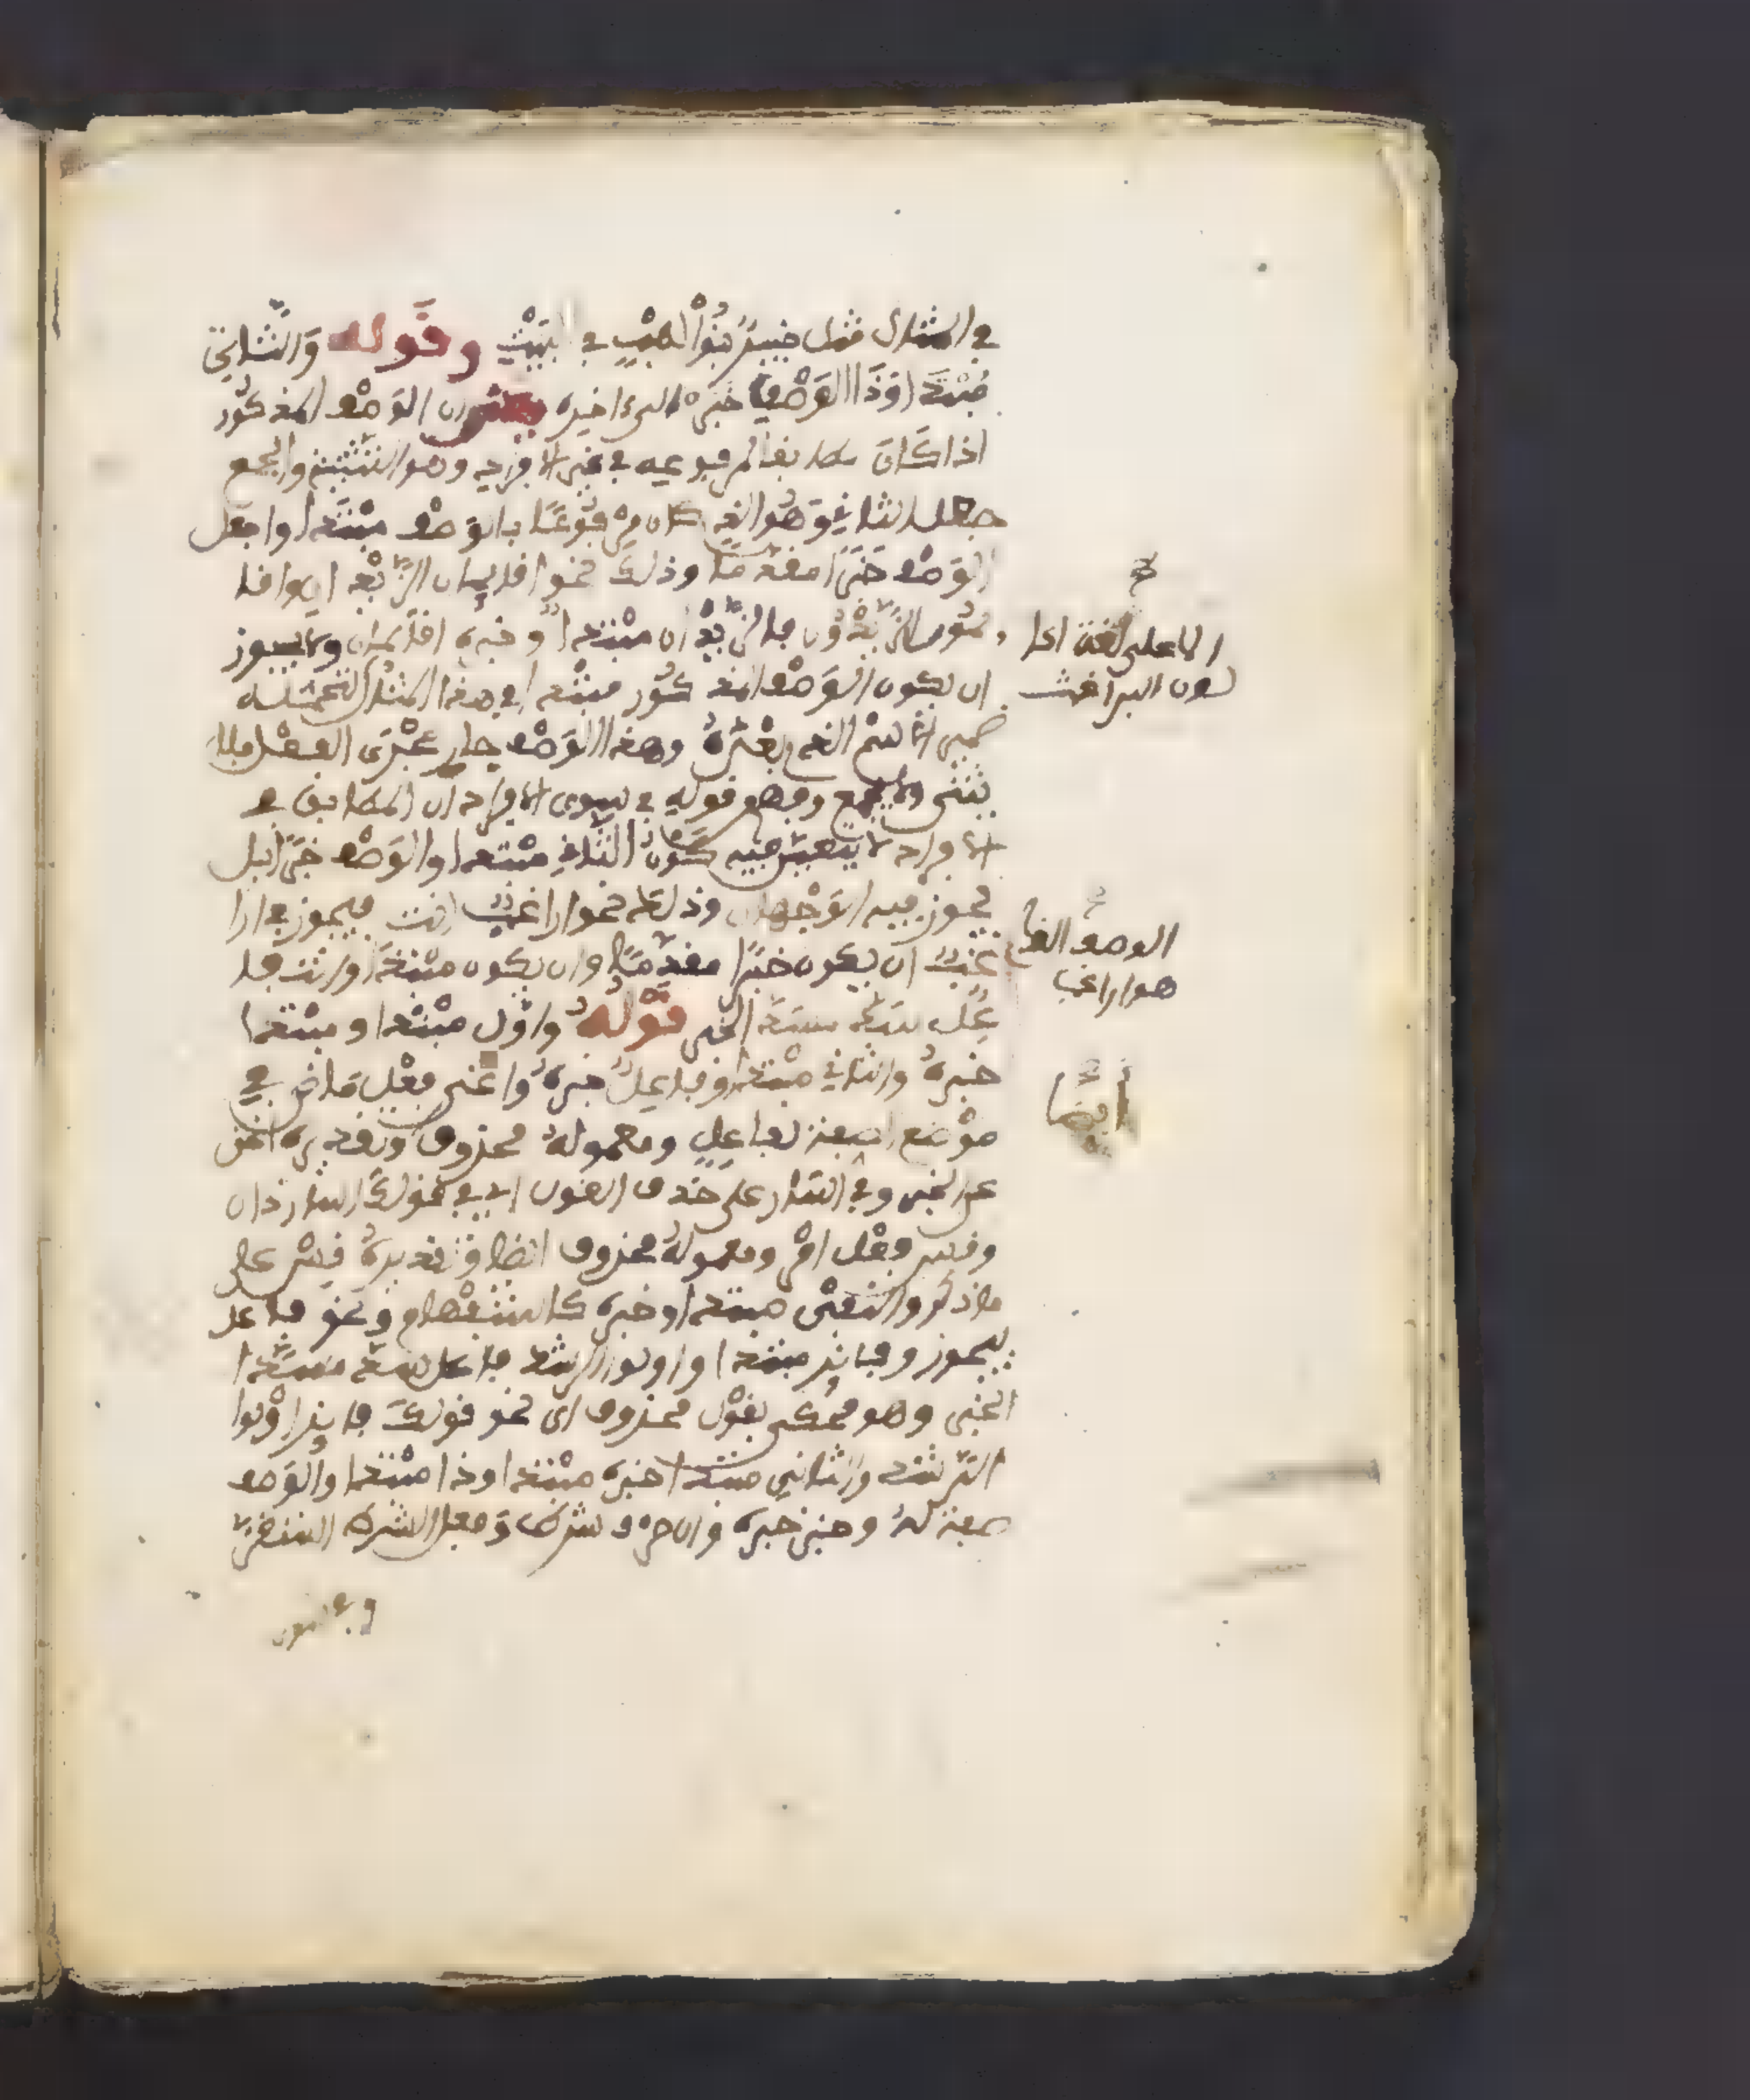 في المثال مثل خبير بنوا لهب في البيت وقوله والثاني
مبتدا وذا الوصف خبر الى اخره يعنى ان الوصف المذكور
اذا كان مطابقا لمرفوعه في غير الافراد وهو التثنية والجمع
جعل الثاني وهو الذي كان مرفوعا بالوصف مبتدا واجعل
الوصف خبرا مقدما وذلك نحو اقايمان الزيدان واقا
يمون الزيدون فالزيدان مبتدا وخبره اقايمان ولا يجوز
ان يكون الوصف المذكور مبتدا في هذا المثال لتحمله
ضمير الاسم الذي بعده وهذا الوصف جار مجرى الفعل فلا
يثنى ولا يجمع وفهم قوله في سوى الافراد ان المطابق في
الافراد لا يتعين فيه كون الثاني مبتدا والوصف خبرا بل
يجوز فيه الوجهان وذلك نحو اراغب انت فيجوز في ارا
غب ان يكون خبرا مقدما وان يكون مبتدا وانت فا
عل سد مسد الخبر قوله واول مبتدا ومبتدا
خبره والثاني مبتدا وفاعل خبره واغنى فعل ماض في
موضع الصفة لفاعل ومعموله محذوف وتقديره اغنى
عن الخبر وفي اسار على حذف القول اي في قولك اسار ذان
وقس فعل امر ومعموله محذوف ايضا وتقديره قس على
ما ذكر والنفي مبتدا وخبره كاستفهام ونحو فاعل
يجوز وفايز مبتدا واولوا الرشد فاعل سد مسد
الخبر وهو محكي بقول محذوف اى نحو قولك فايز اولوا
الرشد والثاني مبتدا خبره مبتدا وذا مبتدا والوصف
صفة له وخبر خبره وان حرف شرط وفعل الشرط استقر
الا على لغة اكا
لون البراغيث
الوصف الذي
هو اراغب
ايضا